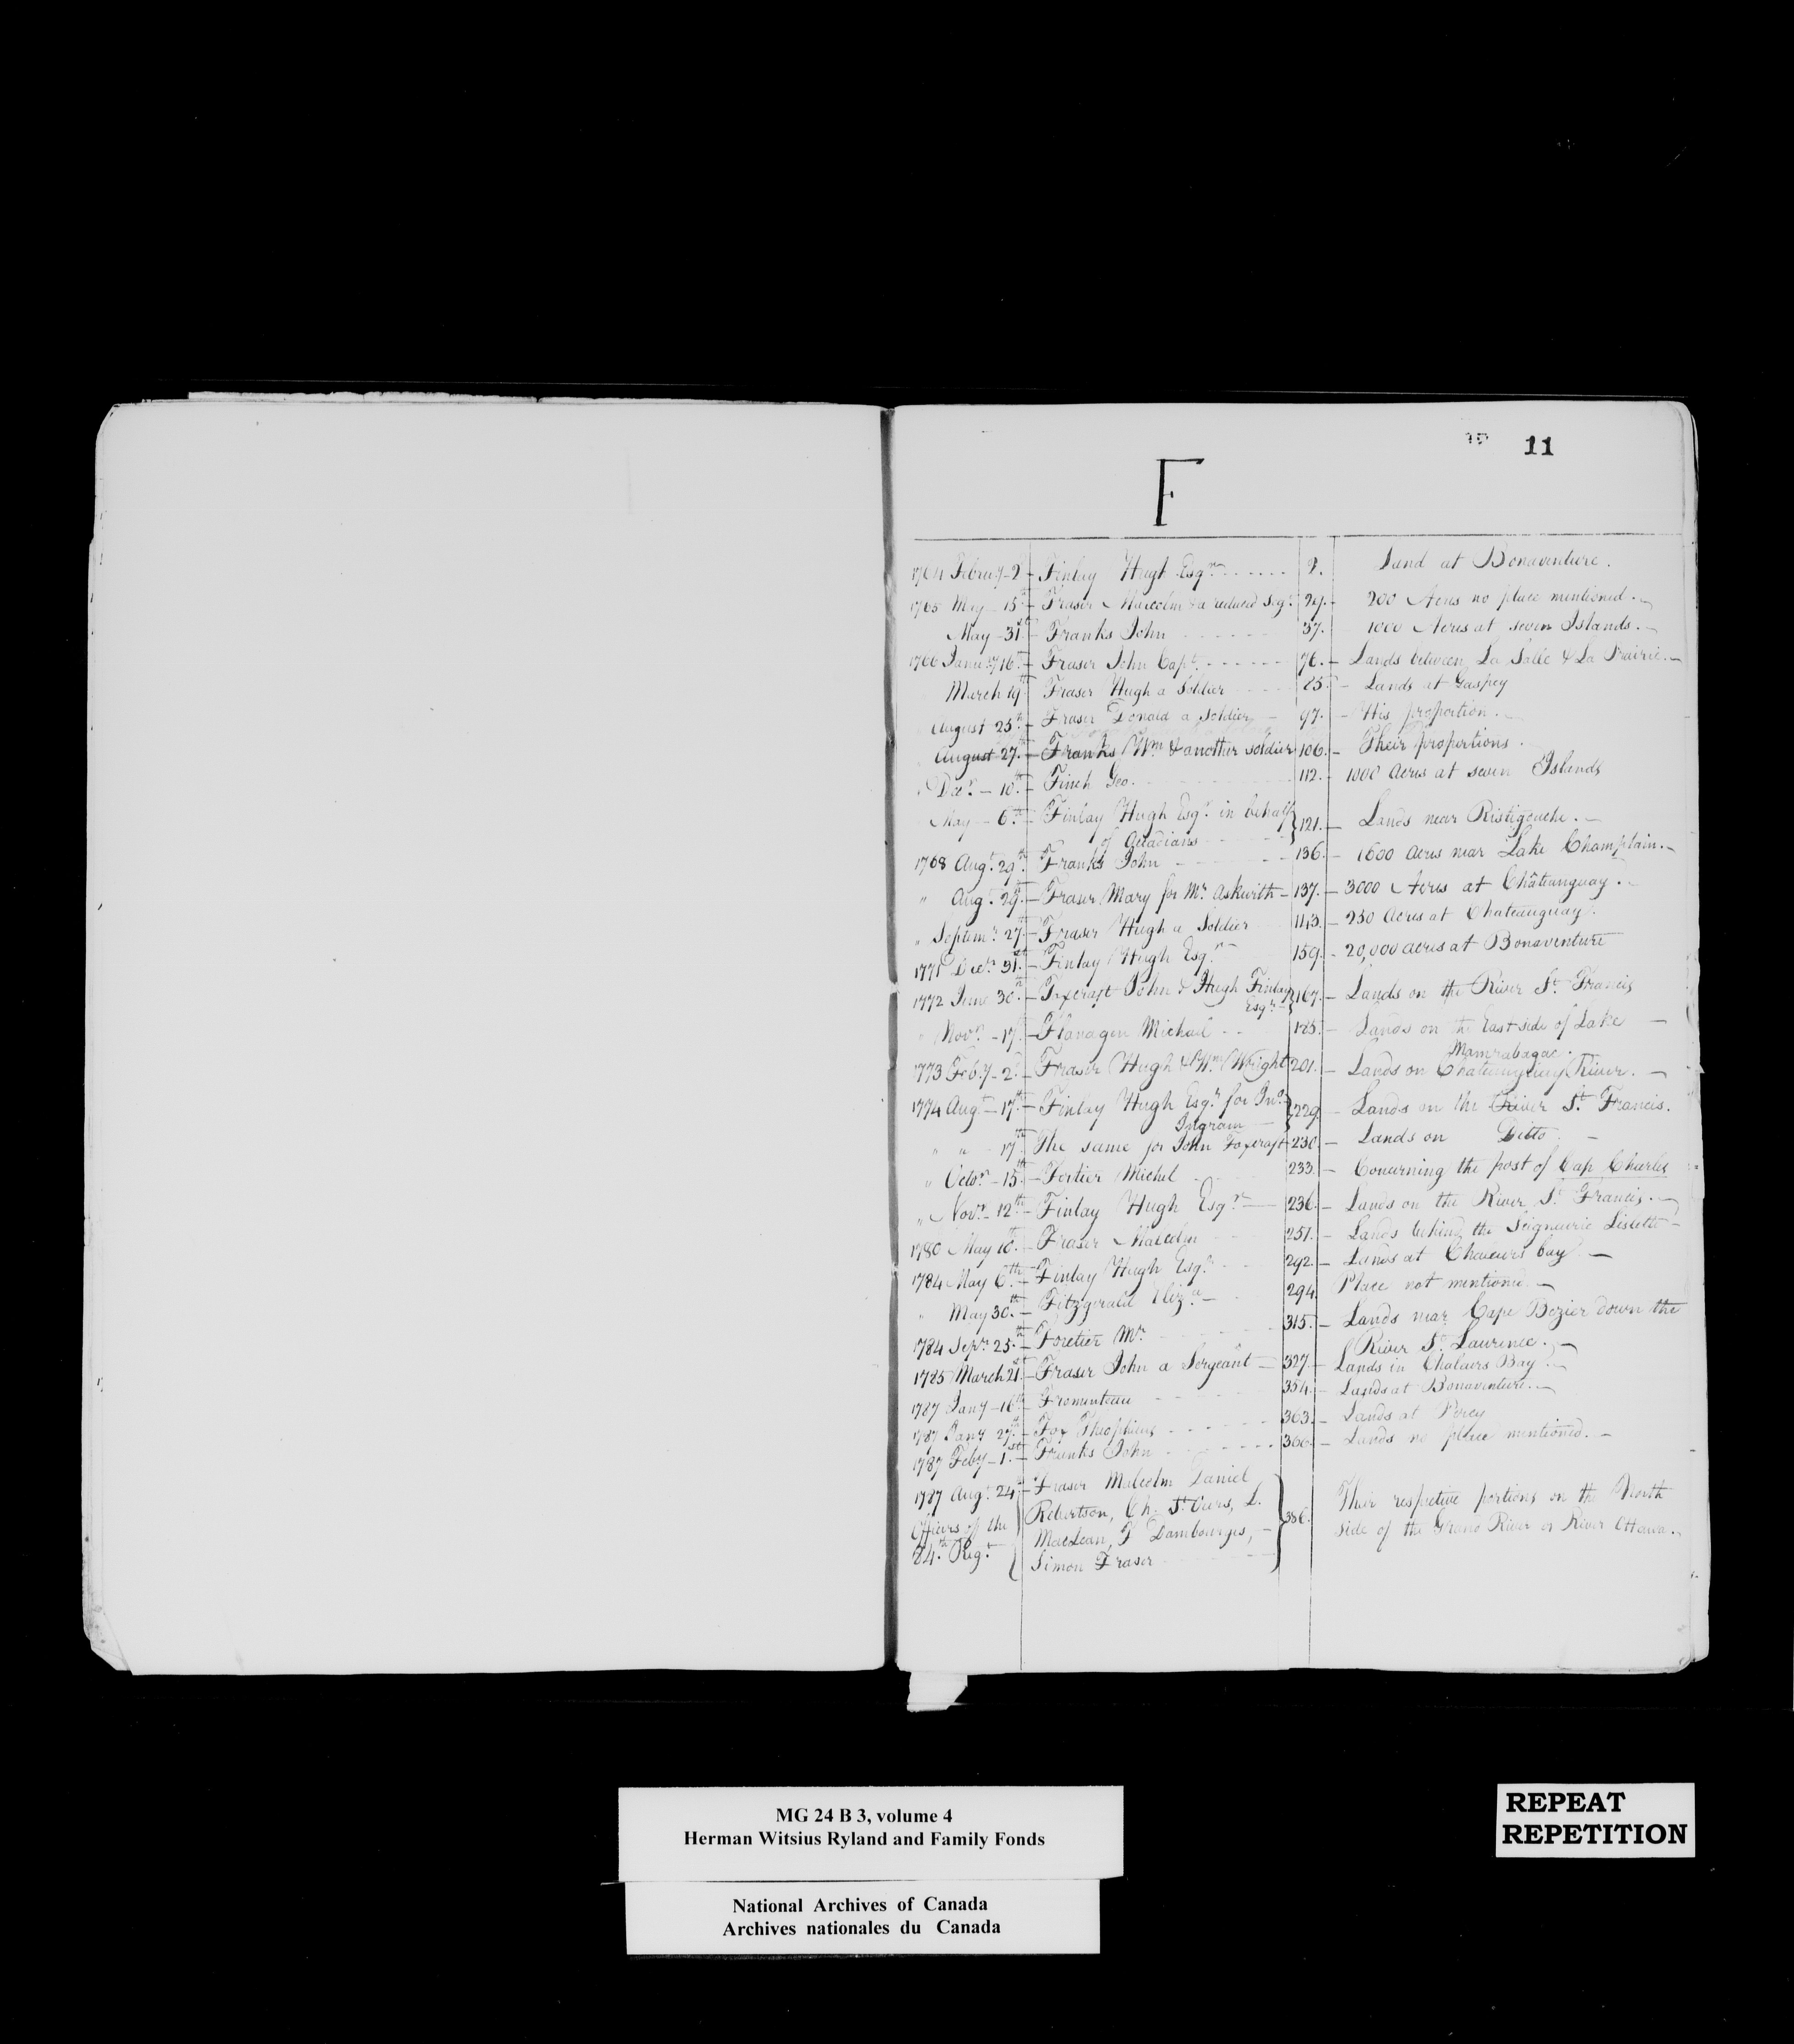 11
F
1764 Febru.y - 2 - Finlay Hugh Esqr. ...... 2. Land at Bonaventure.
1765 May - 15th - Fraser Malcolm a reduced 29. - 200 Acres no place mentioned. -
May - 31st - Franks John ...... 37. 1000 Acres at seven Islands. -
1766 16th - Fraser John Capt. ...... 76. - Lands between La Salle & La Prairie. -
March 19th Fraser Hugh a Soldier ..... 85. - Lands at Gaspey
August 25th - Fraser Donald a Soldier - 97. - His proportion. -
August 27th - Franks Wm. & another soldier 106. - Their proportions.
Decr. - 10th - Finch Geo. ...... 112. - 1000 Acres at seven Islands
May - 6th - Finlay Hugh Esqr. in behalf
of Accadians ...... } 121. - Lands near Ristigouche. -
1768 Augt. 29th. Franks John ...... 136. - 1600 Acres near Lake Champlain. -
" Augt. 29th. - Fraser Mary for Mr. Askwith - 137. - 3000 Acres at Châteauguay. -
" Septemr. 27th - Fraser Hugh a Soldier 143. - 250 Acres at Chateauguay.
1771 Decr. 31st. - Finlay Hugh Esqr. - 159. - 20,000 acres at Bonaventure
1772 June 30th. - Foxcraft John & Hugh Finlay
Esqrs. - } 167. - Lands on the River St. Francis
" Novr. - 17th. - Flanagen Michael .. 185. - Lands on the East side of Lake -
Mamrabagac.
1773 Feb.y - 2d. - Fraser Hugh & Wm. Wright 201. - Lands on Chateauguay River. -
1774 Augt. - 17th. - Finlay Hugh Esqr. for Jno.
Ingram - } 229 - Lands on the River St. Francis.
" " - 17th The same for John Foxcraft - 230. - Lands on Ditto. -
" Octor. - 15th. - Fortier Michel ...... 233. - Concerning the post of Cap Charles
" Novr. - 12th - Finlay Hugh Esqr. - 236. - Lands on the River St. Francis. -
1780 May 10th. - Fraser Malcolm ...... 251. - Lands behind the Seigneurie Lislette -
1784 May 6th. - Finlay Hugh Esqr. ..... 292. - Lands at Chaleurs bay -
" May 30th. - Fitzgerald Eliz.a - 294. Place not mentioned. -
1784 Sepr. 25th. - Foretier Mr. ...... 315. - Lands near Cape Rozier down the
River St. Laurence. -
1785 March 21st. - Fraser John a Sergeant - 327. - Lands in Chaleurs Bay. -
1787 Jany - 16th - Fromenteau ...... 354. - Lands at Bonaventure. -
1787 Jany 27th. - Fox Theophilus ...... 363. - Lands at Percy
1787 Feb.y - 1st. - Franks John ...... 366. - Lands no place mentioned. -
1787 Augt. 24th. - Fraser Malcolm Daniel
Officers of the Robertson, Ch. St. Ours, L.
84th. Regt. MacLean, F Dambourges, -
Simon Fraser ...... } 386. Their respective portions on the North
side of the Grand River or River Ottawa. -
MG 24 B 3, volume 4
Herman Witsius Ryland and Family Fonds
National Archives of Canada
Archives nationales du Canada
REPEAT
REPETITION